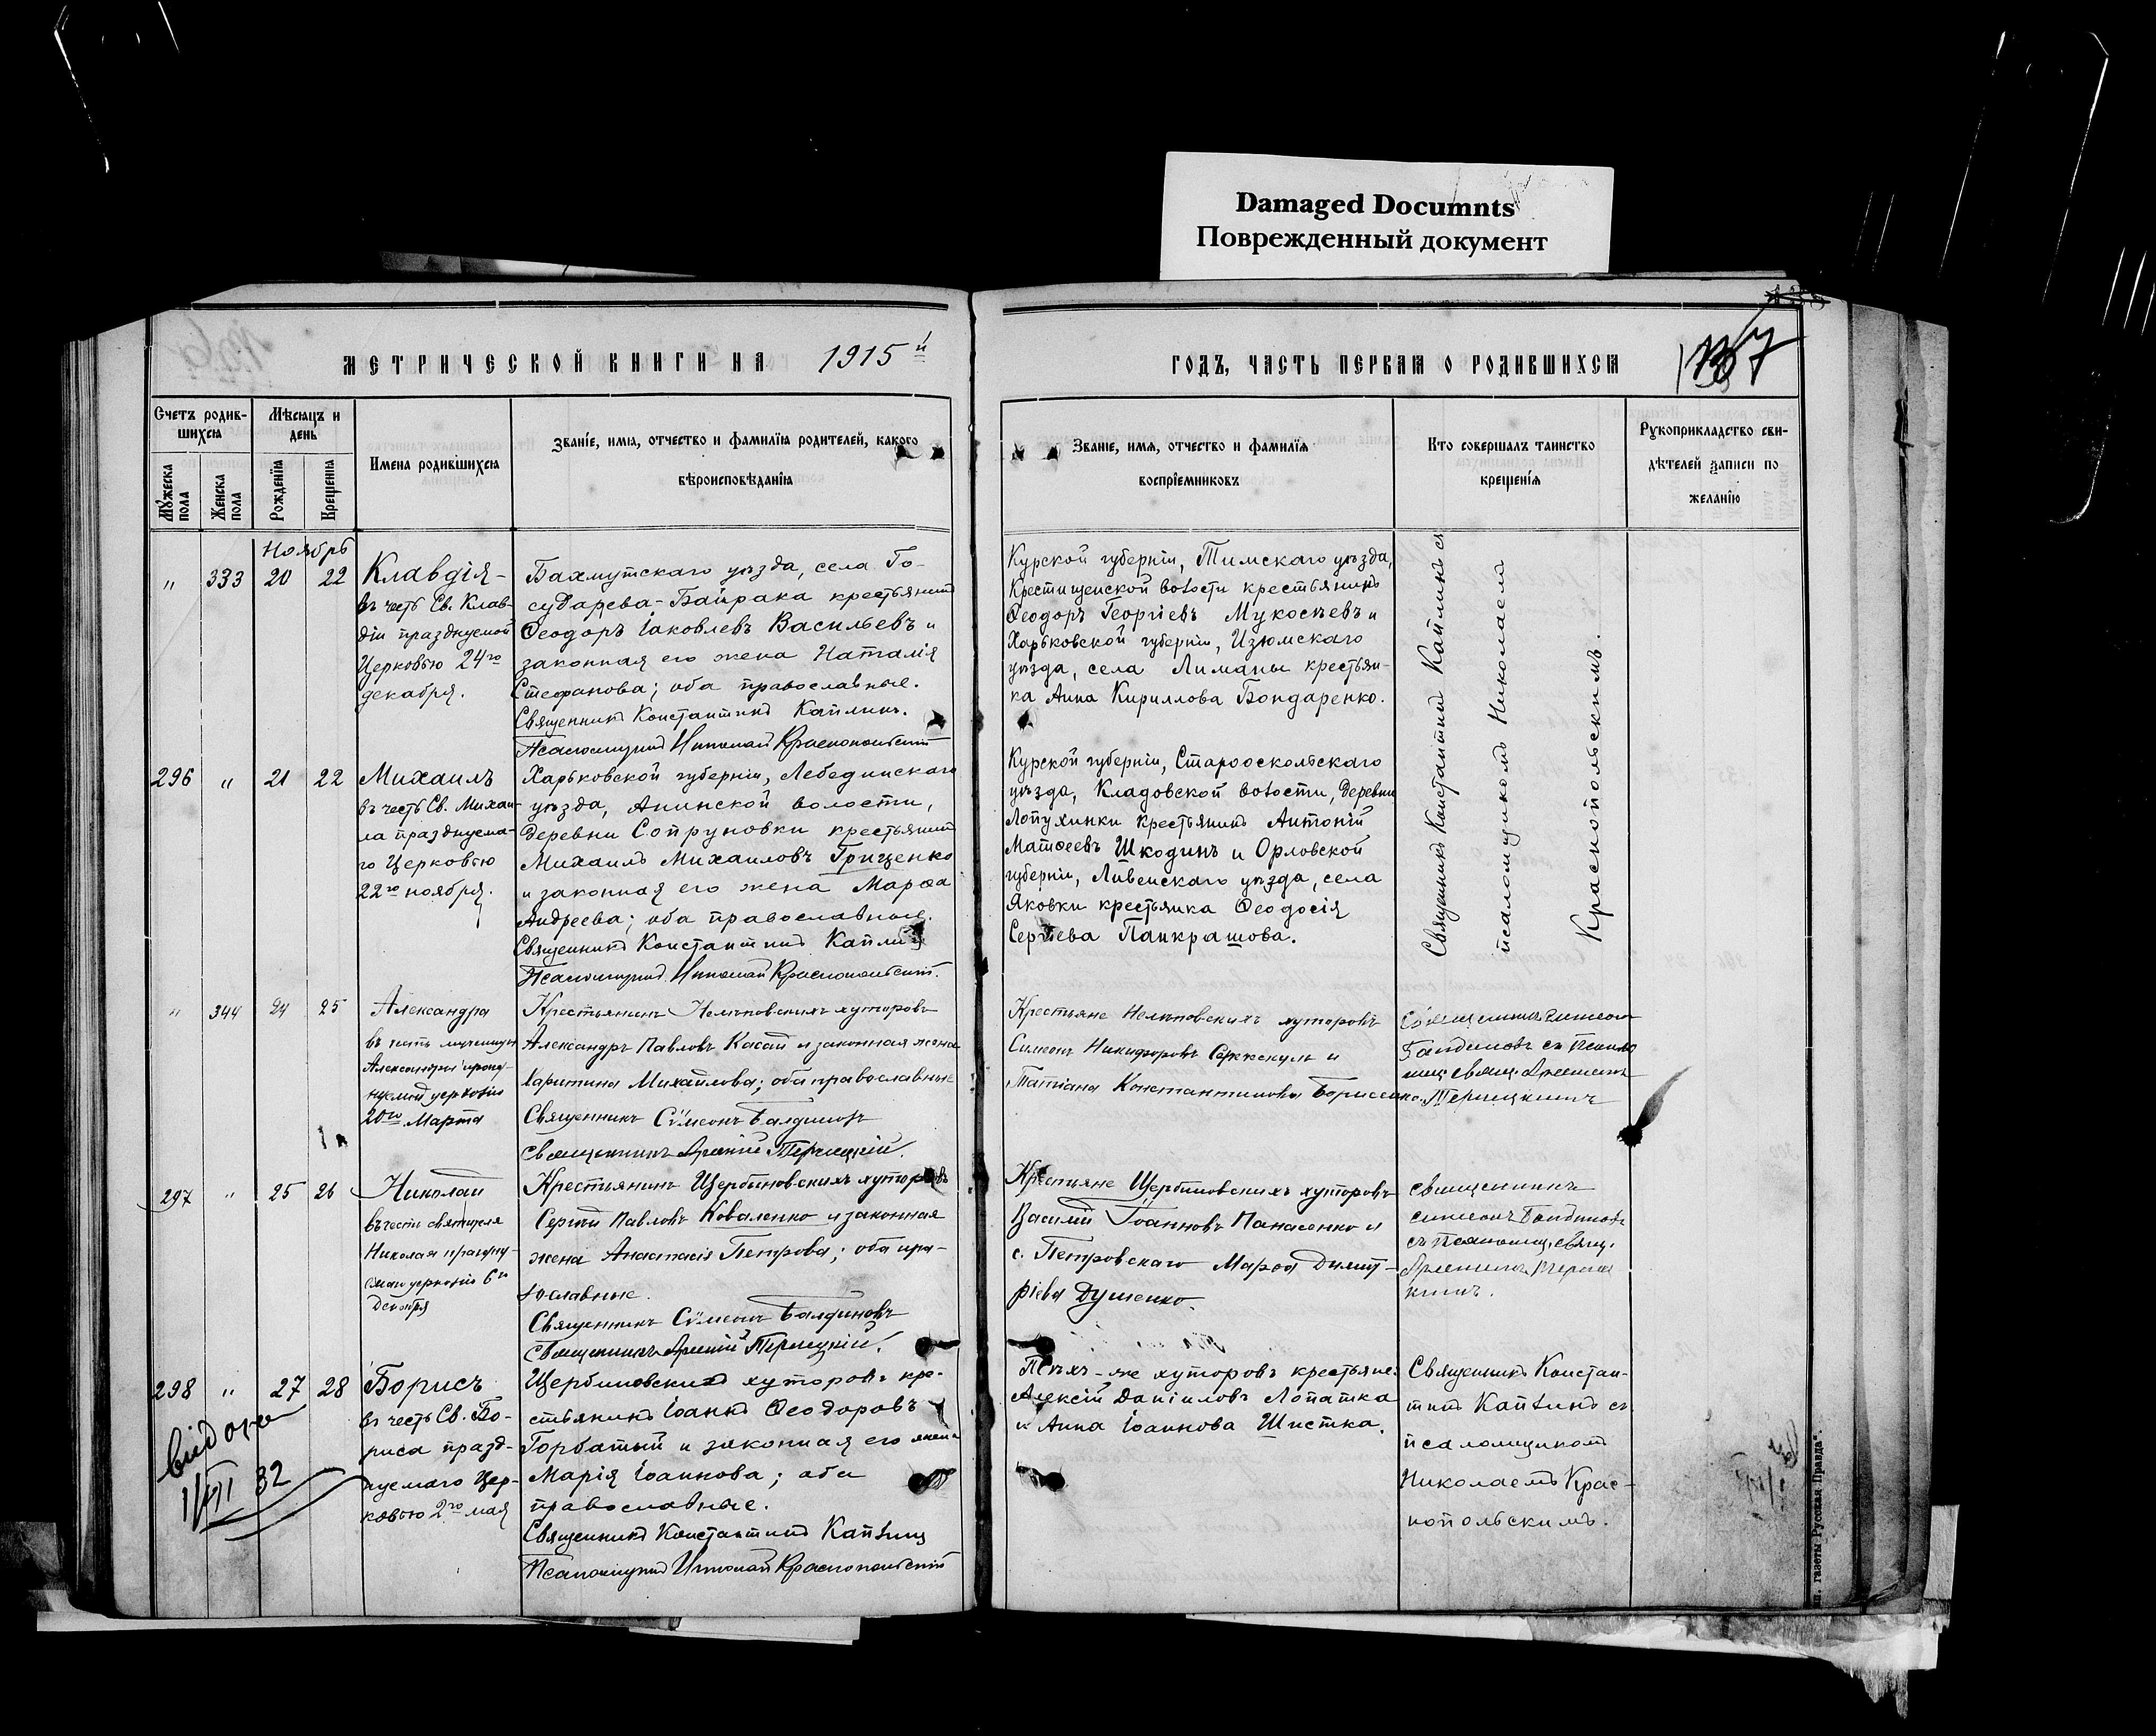 Damaged Documnts
Поврежденный документ
МЕТРИЧЕСКОЙ КНИГИ НА 1915 й
ГОДЪ, ЧАСТЬ ПЕРВАЯ О РОДИВШИХСЯ
137
Счетъ родив-
шихся
Мужеска пола
Женска пола
Мѣсяцъ и
день
Рожденія
Крещенія
Имена родившихся
Званіе, имя, отчество и фамилія родителей, какого
вѣроисповѣданія
Званіе, имя, отчество и фамилія
воспріемниковъ
Кто совершалъ таинство
крещенія
Рукоприкладство сви-
дѣтелей записи по
желанію
Ноябрь
" 333 20 22
Клавдія -
въ честь Св. Клав-
діи празднуемой
Церковью 24го
декабря.
Бахмутскаго уѣзда, села Го-
сударева-Байрака крестьянинъ
Ѳеодоръ Іаковлевъ Васильевъ и
законная его жена Наталія
Стефанова; оба православные.
Священникъ Константинъ Каплинъ.
Псаломщикъ Николай Краснопольскій
Курской губерніи, Тимскаго уѣзда,
Крестищенской волости крестьянинъ
Ѳеодоръ Георгіевъ Мукосѣевъ и
Харьковской губерніи, Изюмскаго
уѣзда, села Лиманы крестьян-
ка Анна Кириллова Бондаренко.
Священникъ Константинъ Каплинъ съ
псаломщикомъ Николаемъ
Краснопольскимъ.
296 " 21 22
Михаилъ
въ честь Св. Михаи-
ла празднуема-
го Церковью
22го ноября.
Харьковской губерніи, Лебединскаго
уѣзда, Анинской волости,
деревни Сопруновки крестьянинъ
Михаилъ Михаиловъ Грищенко
и законная его жена Марѳа
Андреева; оба православные.
Священникъ Константинъ Каплинъ
Псаломщикъ Николай Краснопольскій.
Курской губерніи, Старооскольскаго
уѣзда, Кладовской волости, деревни
Лопухинки крестьянинъ Антоній
Матѳеевъ Шкодинъ и Орловской
губерніи, Ливенскаго уѣзда, села
Яковки крестьянка Ѳеодосія
Сергіева Панкрашова.
" 344 24 25
Александра
въ честь мученицы
Александры празд-
нуемой церковію
20го Марта
Крестьянинъ Нелѣповскихъ хуторовъ
Александръ Павловъ Касай и законная жена
Харитина Михайлова; оба православные
Священникъ Сѵмеонъ Балдиновъ
Священникъ Арсеній
Крестьяне Нелѣповскихъ хуторовъ
Симеонъ Никифоровъ и
Татіана Константинова Борисенко.
Священникъ Симеонъ
297 " 25 26
Николай
въ честь святителя
Николая праздну-
емаго церковію 6го
Декабря
Крестьянинъ Щербиновскихъ хуторовъ
Сергій Павловъ Коваленко и законная
жена Анастасія Петрова; оба пра-
вославные.
Священникъ Сѵмеонъ Балдиновъ
Священникъ Арсеній
Крестьяне Щербиновскихъ хуторовъ
Василій Іоанновъ Панасенко и
с. Петровскаго Марѳа Димит-
ріева Душенко.
священникъ
симеонъ Балдиновъ
298 " 27 28
Борисъ
въ честь Св. Бо-
риса празд-
нуемаго Цер-
ковью 2го мая
Щербиновскихъ хуторовъ кре-
стьянинъ Іоаннъ Ѳеодоровъ
Горбатый и законная его жена
Марія Іоаннова; оба
православные.
Священникъ Константинъ Каплинъ
Псаломщикъ Николай Краснопольскій
Тѣхъ-же хуторовъ крестьяне:
Алексій Даніиловъ Лопатка
и Анна Іоаннова Шистка.
Священникъ Констан-
тинъ Каплинъ съ
псаломщикомъ
Николаемъ Крас-
нопольскимъ.
1/VII 32
газеты "Русская Правда".